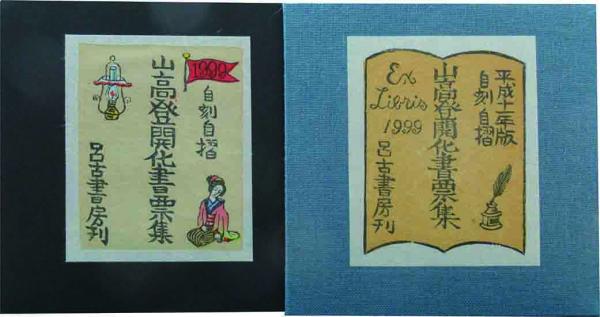 1999
自刻自摺
山高登開化書票集
呂古書房刊
平成十一年版
自刻自摺
山高登開化書票集
Ex
Libris
1999
呂古書房刊